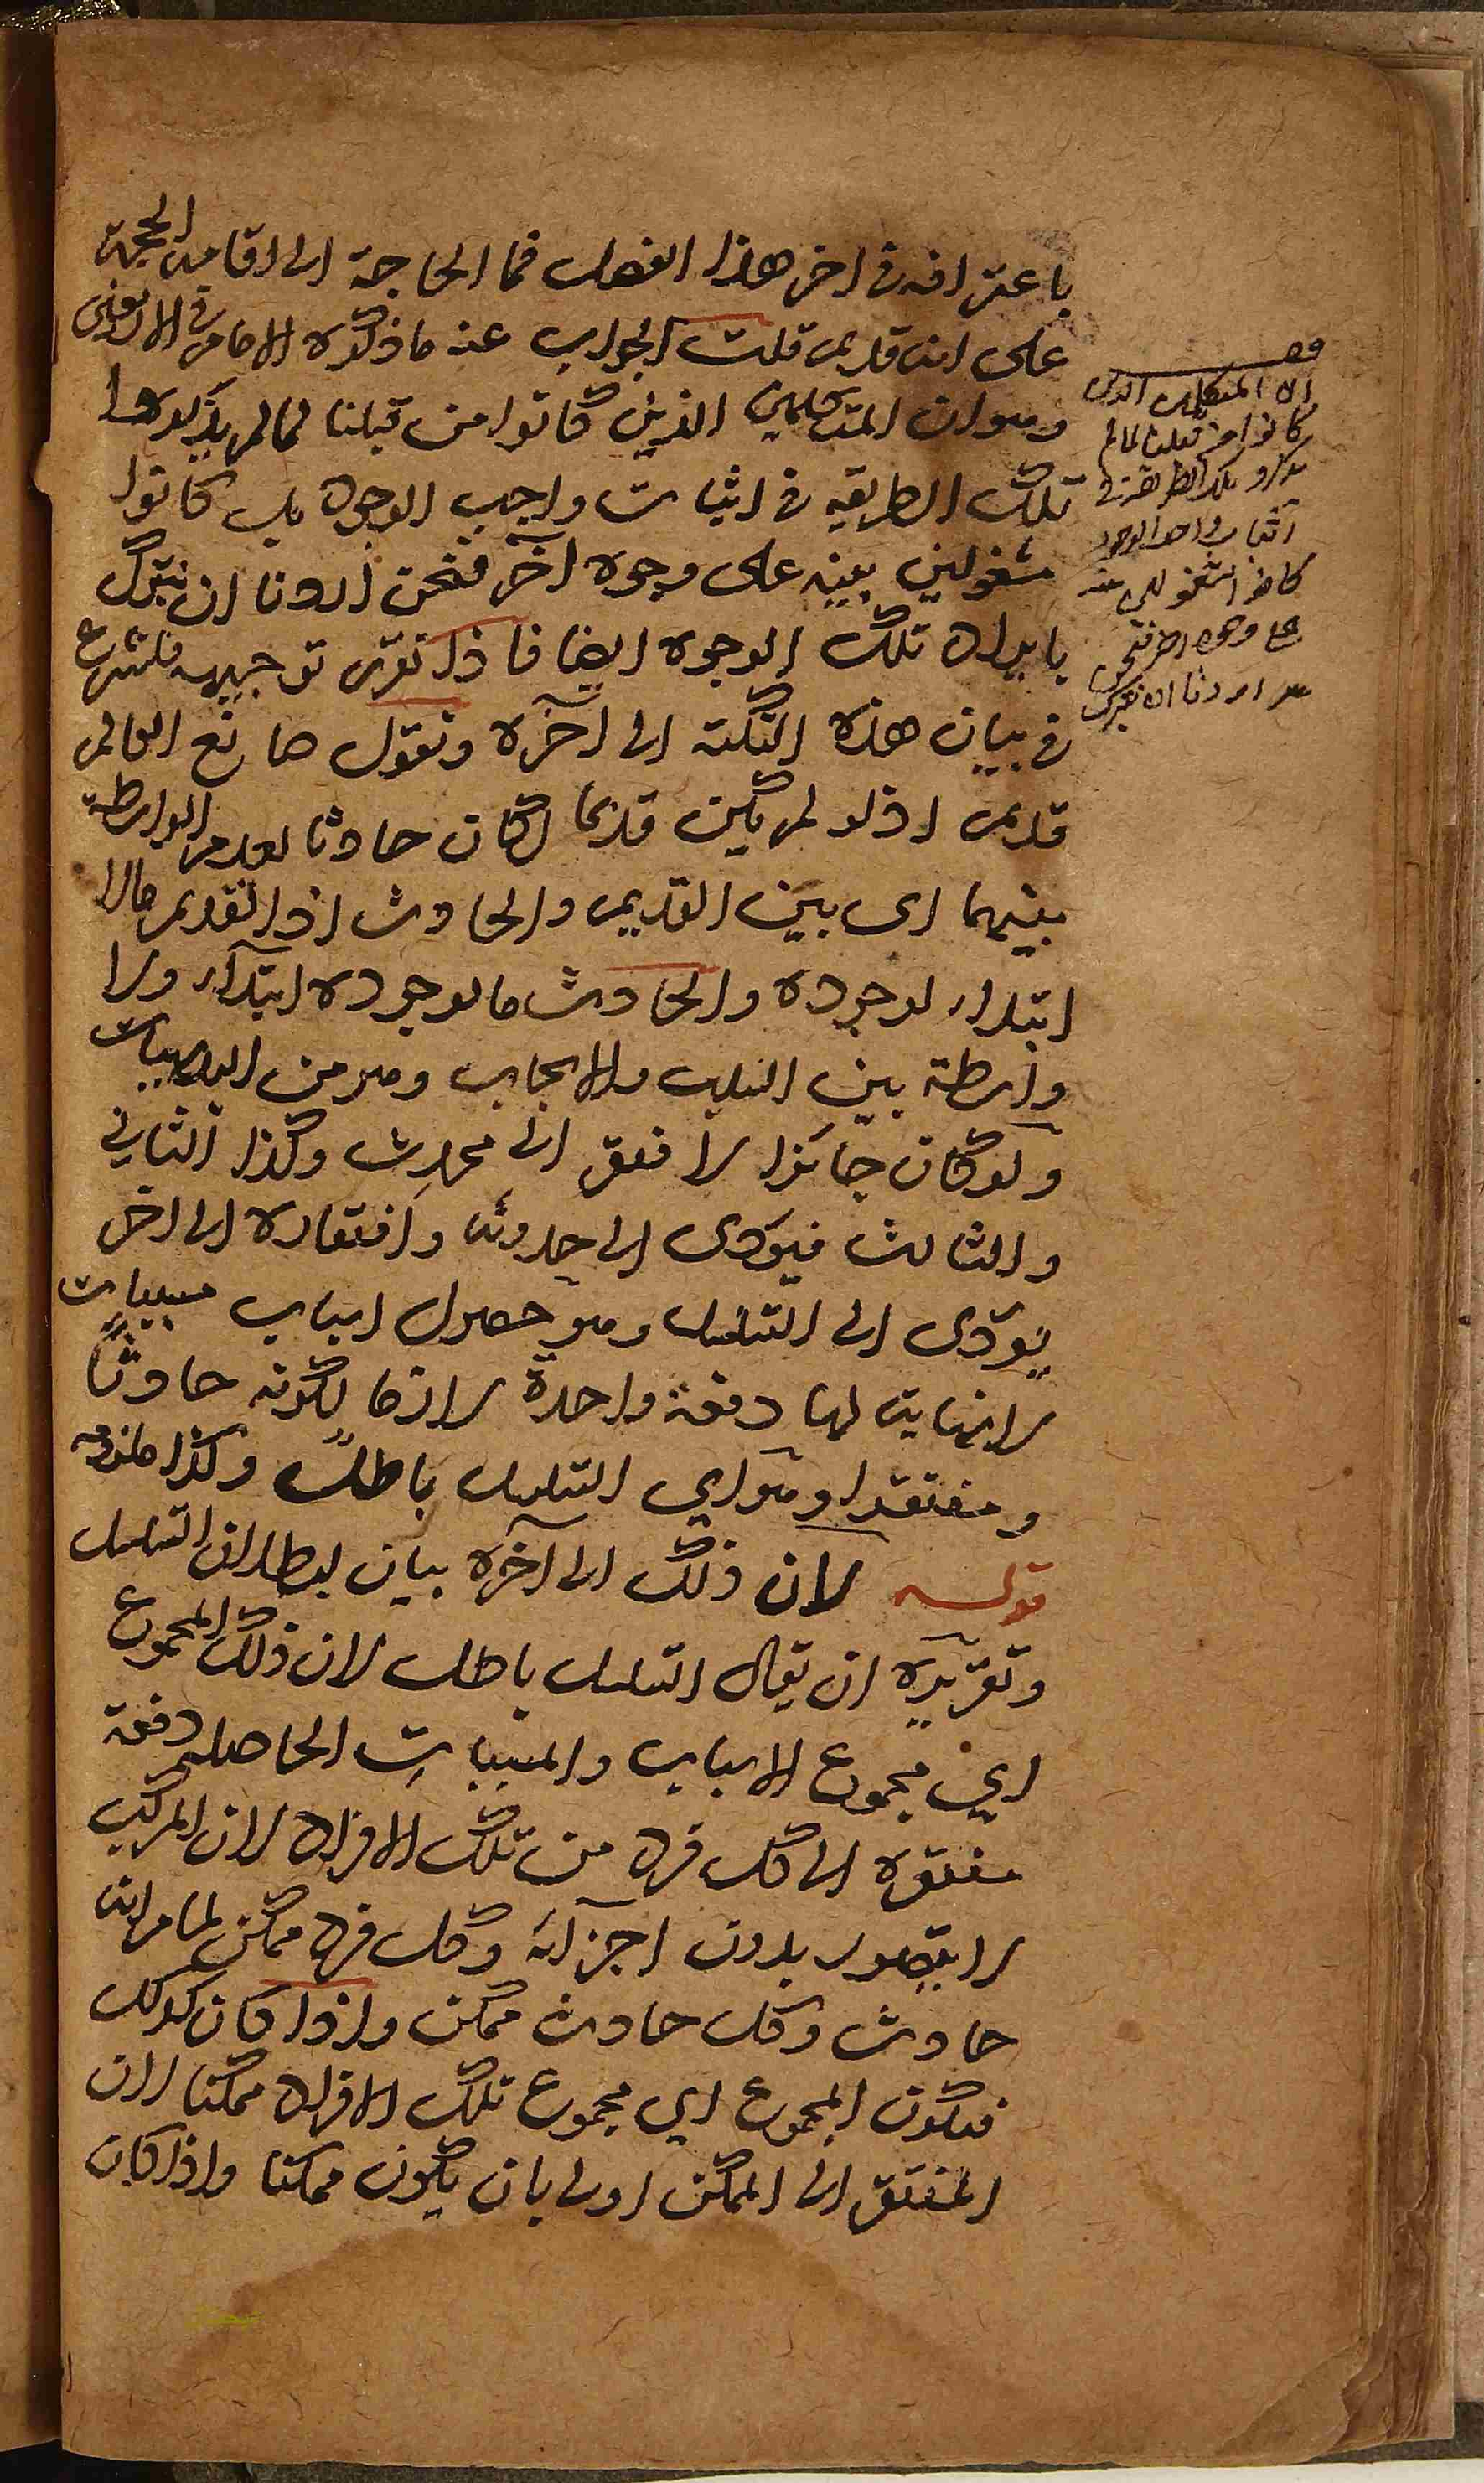 باعترافه فى اخر هذا الفصل فما الحاجة الى اقامة الحجة
على انه قديم قلت الجواب عنه ما ذكره الامام فى الاربعين
وهو ان المتكلمين الذين كانوا من قبلنا لما لم يذكروا
تلك الطريقه فى اثبات واجب الوجود بل كانوا
مشغولين ببينه على وجوه آخر فنحن اردنا ان نتبرك
بايراد تلك الوجوه ايضا فاذا تقرى توجيهه فلنشرع
فى بيان هذه النكتة الى آخره ونقول صانع العالم
قديم اذ لو لم يكن قديما لكان حادثا لعدم الواسطة
بينهما اى بين القديم والحادث اذ القديم ما لا
ابتداء لوجوده والحادث ما لوجوده ابتداء ولا
واسطة بين السلب والايجاب وهو من البديهيات
ولو كان حادثا لافتقر الى محدث وكذا الثانى
والثالث فيؤدى الى حدوثه وافتقاره الى اخر
يؤدى الى التسلسل وهو حصول اسباب مسببات
لا نهاية لها دفعة واحدة لازما لكونه حادثا
ومفتقرا وهو اي التسلسل باطل وكذا ملزومه
قوله لان ذلك الى آخره بيان لبطلان التسلسل
وتقريره ان يقال التسلسل باطل لان ذلك المجموع
اي مجموع الاسباب والمسببات الحاصلة دفعة
مفتقره الى كل فرد من تلك الافراد لان المركب
لا يتصور بدون اجزائه وكل فرد ممكن لما مر انه
حادث وكل حادث ممكن واذا كان كذلك
فيكون المجموع اي مجموع تلك الافراد ممكنا لان
المفتقر الى الممكن اولى بان يكون ممكنا واذا كان
ان المتكلمين الذين
كانوا من قبلنا لما لم
يذكروا تلك الطريقة فى
اثبات واجب الوجود
كانوا مشغولين
على وجوه اخر فنحن
اردنا ان نتبرك